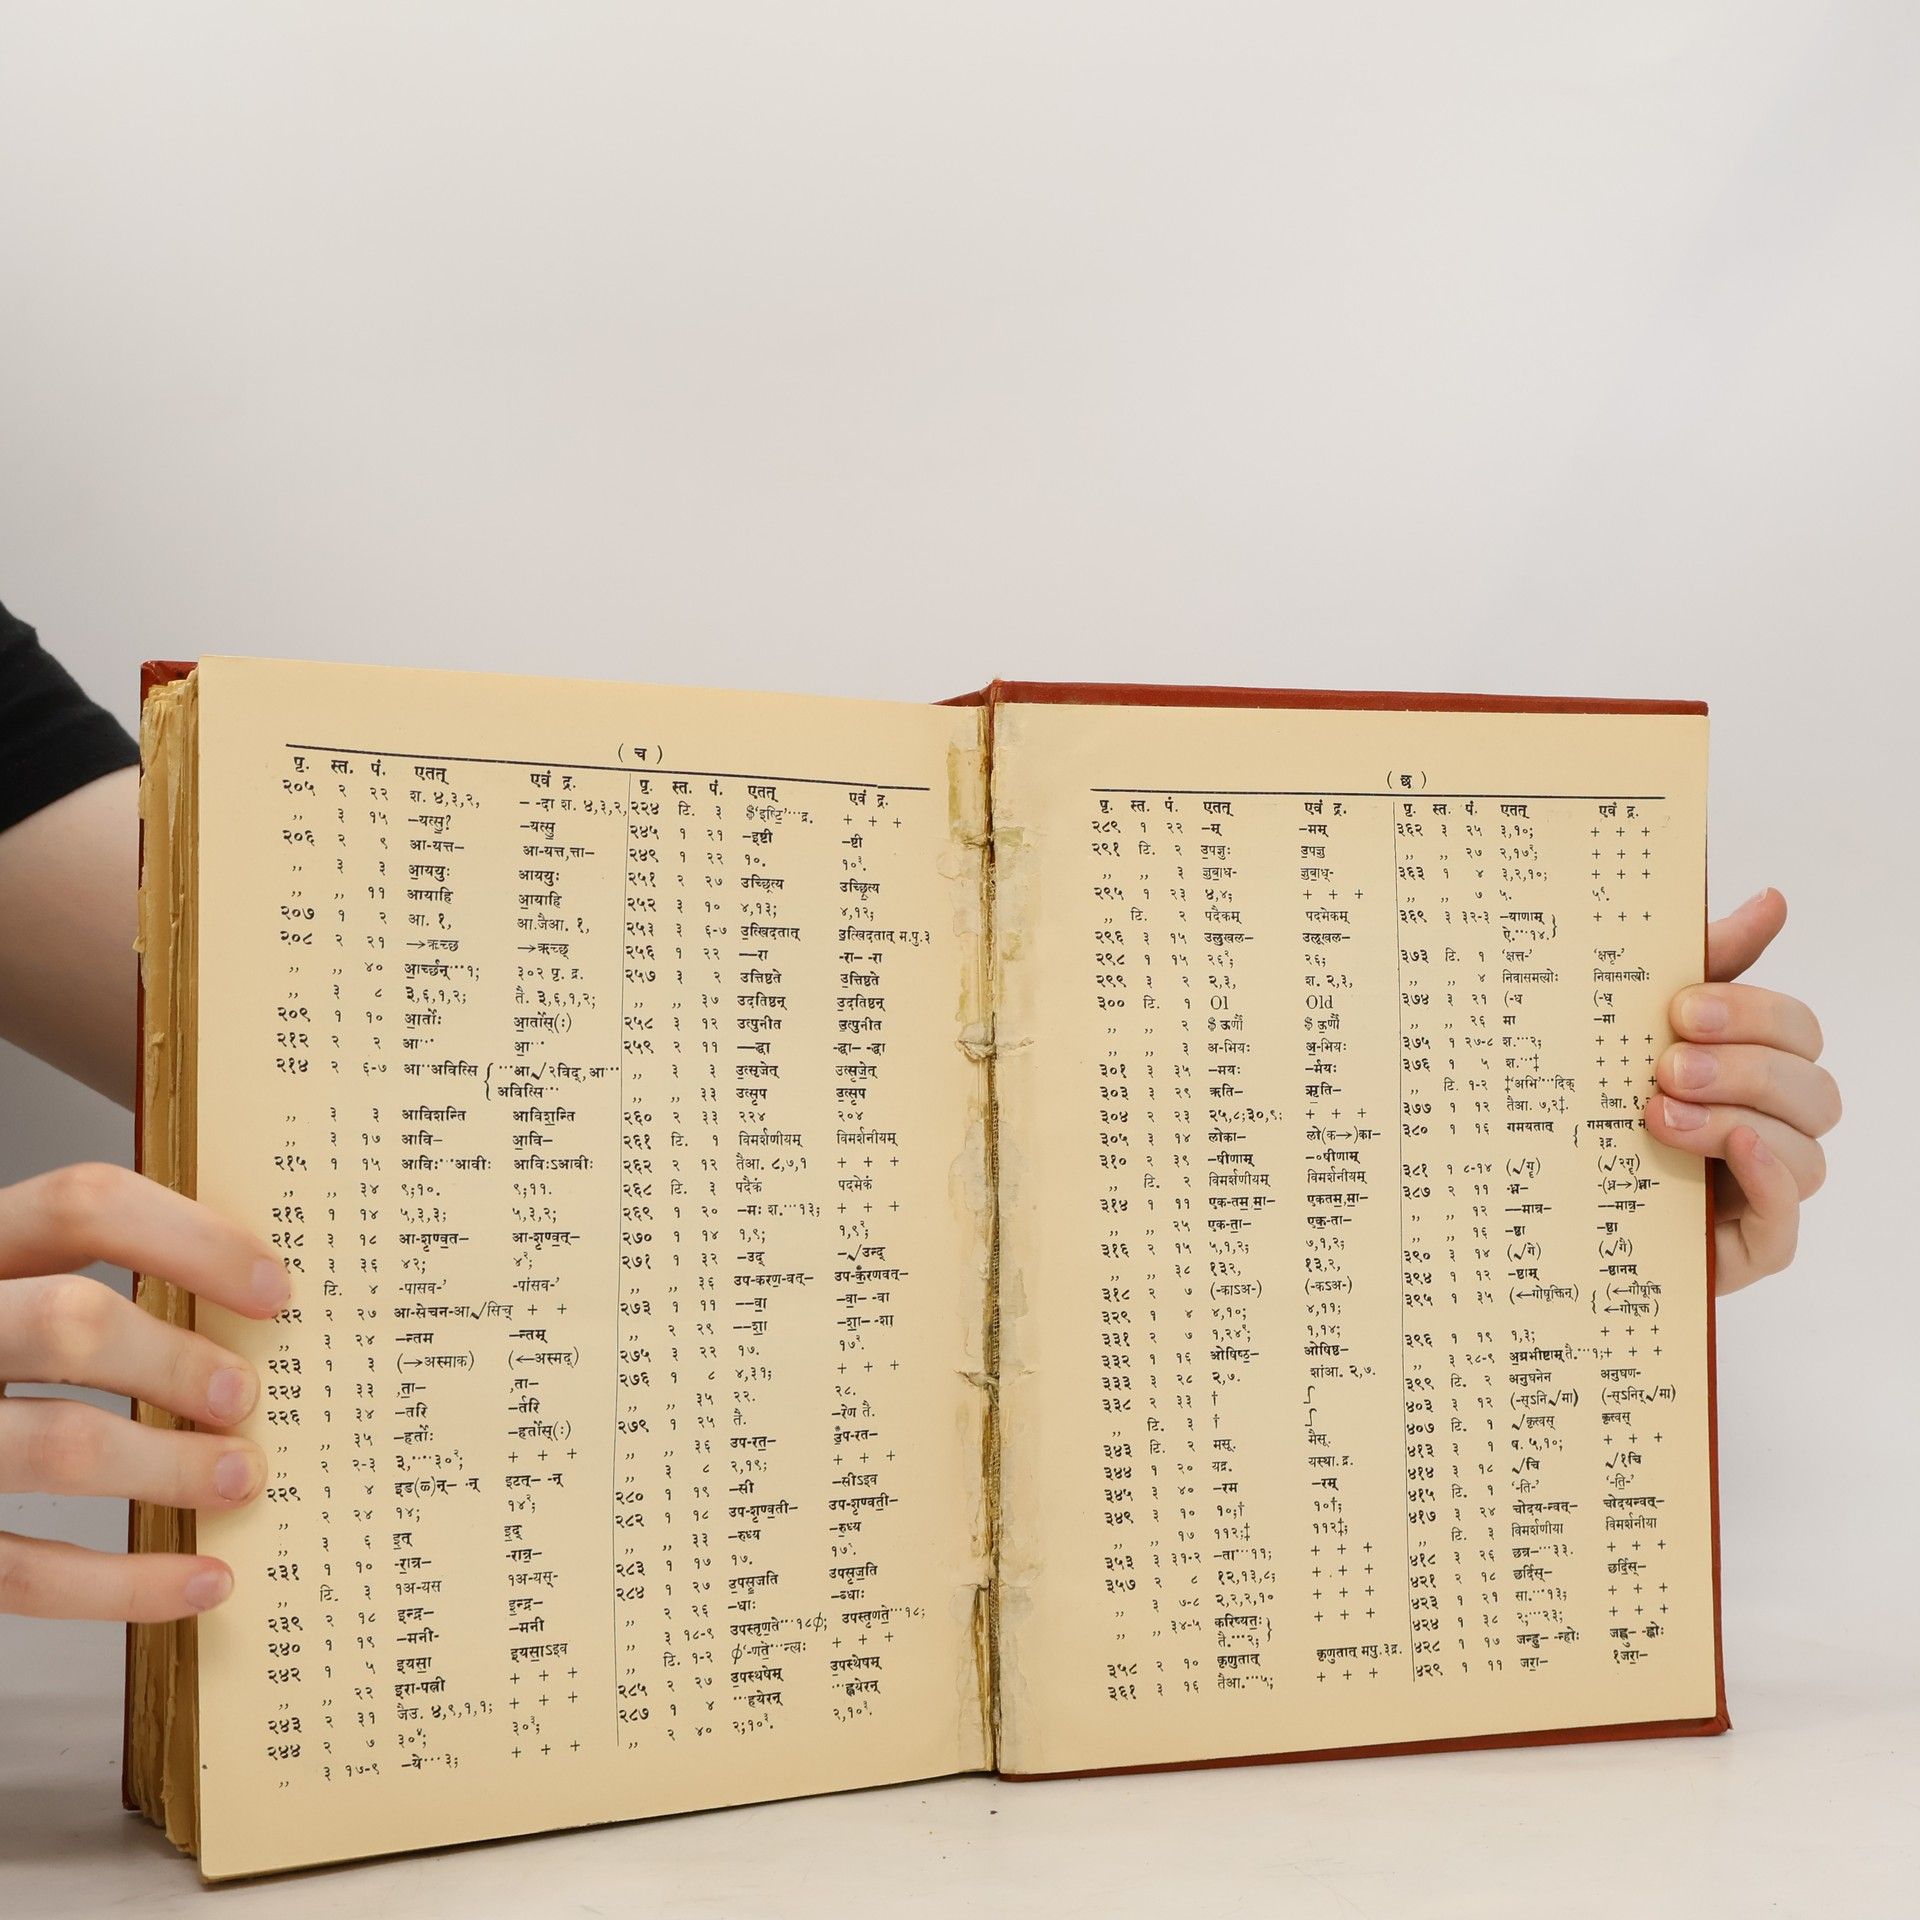 ( च )
पृ. स्त. पं. एतत् एवं द्र.
२०५ २ २२ श. ४,३,२, – -दा श. ४,३,२,
,, ३ १५ –यत्सु? –यत्सु
२०६ २ ९ आ-यत्त– आ-यत्त,त्ता–
,, ३ ३ आययुः आययुः
,, ,, ११ आयाहि आयाहि
२०७ १ २ आ. १, आ.जैआ. १,
२०८ २ २१ →ऋच्छ →ऋच्छ्
,, ,, ४० आर्च्छन्···१; ३०२ पृ. द्र.
,, ३ ८ ३,६,१,२; तै. ३,६,१,२;
२०९ १ १० आर्तोः आर्तोस्(ः)
२१२ २ २ आ··· आ···
२१४ २ ६-७ आ··अवित्सि { ···आ√२विद्,आ···
अवित्सि···
,, ३ ३ आविशन्ति आविशन्ति
,, ३ १७ आवि– आवि–
२१५ १ १५ आविः··आवीः आविःऽआवीः
,, ,, ३४ ९;१०. ९;११.
२१६ १ १४ ५,३,३; ५,३,२;
२१८ ३ १८ आ-शृण्वत– आ-शृण्वत्–
१९ ३ ३६ ४२; ४२;
टि. ४ -पासव-’ -पांसव-’
२२२ २ २७ आ-सेचन-आ√सिच् + +
,, ३ २४ –न्तम –न्तम्
२२३ १ ३ (→अस्माक) (←अस्मद्)
२२४ १ ३३ ,ता– ,ता–
२२६ १ ३४ –तरि –र्तरि
,, ,, ३५ –हर्तोः –हर्तोस्(ः)
,, २ २-३ ३,····३०२; + + +
२२९ १ ४ इड(ळ)न्– -न् इटत्– -न्
,, २ २४ १४; १४२;
,, ३ ६ इत् इद्
२३१ १ १० -रात्र– -रात्र–
,, टि. ३ १अ-यस १अ-यस्-
२३९ २ १८ इन्द्र– इन्द्र–
२४० १ १९ –मनी- –मनी
२४२ १ ५ इयसा इयसाऽइव
,, ,, २२ इरा-पत्नी + + +
२४३ २ ३१ जैउ. ४,९,१,१; + + +
२४४ २ ७ ३०४; ३०३;
,, ३ १७-९ –ये···३; + + +
पृ. स्त. पं. एतत् एवं द्र.
२२४ टि. ३ $‘इष्टि’···द्र. + + +
२४५ १ २१ –इष्टी –ष्टी
२४९ १ २२ १०. १०२.
२५१ २ २७ उच्छित्य उच्छृत्य
२५२ ३ १० ४,१३; ४,१२;
२५३ ३ ६-७ उत्खिदतात् उत्खिदतात् म.पु.३
२५६ १ २२ –-रा -रा– -रा
२५७ ३ २ उत्तिष्ठते उत्तिष्ठते
,, ,, ३७ उदतिष्ठन् उदतिष्ठन्
२५८ ३ १२ उत्पुनीत उत्पुनीत
२५९ २ ११ –-द्धा -द्धा– -द्धा
,, ३ ३ उत्सृजेत् उत्सृजेत्
,, ,, ३३ उत्सृप उत्सृप
२६० २ ३३ २२४ २०४
२६१ टि. १ विमर्शणीयम् विमर्शनीयम्
२६२ २ १२ तैआ. ८,७,१ + + +
२६८ टि. ३ पदैकं पदमेकं
२६९ १ २० –मः श.···१३; + + +
२७० १ १४ १,९; १,९२;
२७१ १ ३२ –उद् –√उन्द्
,, ,, ३६ उप-करण-वत्– उप-करणवत्–
२७३ १ ११ –-वा –वा– -वा
,, २ २९ –-शा –शा– -शा
२७५ ३ २२ १७. १७२.
२७६ १ ८ ४,३१; + + +
,, ,, ३५ २२. २८.
२७९ १ २५ तै. –रेण तै.
,, ,, ३६ उप-रत– उप-रत–
,, ३ ८ २,१९; + + +
२८० १ १९ –सी –सीऽइव
२८२ १ १८ उप-शृण्वती– उप-शृण्वती–
,, ,, ३३ –रुध्य –रुध्य
२८३ १ १७ १७. १७२.
२८४ १ २७ उपसृजति उपसृजति
,, २ २६ –धाः –ब्धाः
,, ३ १८-९ उपस्तृणते···१८φ; उपस्तृणते···१८;
,, टि. १-२ φ‘-णते···न्त्वः + + +
२८५ २ २७ उपस्थषेम् उपस्थेषम्
२८७ १ ४ ···हयेरन् ···ह्वयेरन्
,, २ ४० २;१०३. २,१०३.
( छ )
पृ. स्त. पं. एतत् एवं द्र.
२८९ १ २२ –म् –मम्
२९१ टि. २ उपज्ञुः उपज्ञु
,, ,, ३ ज्ञुबाध- ज्ञुबाध्-
२९५ १ २३ ४,४; + + +
,, टि. २ पदैकम् पदमेकम्
२९६ ३ १५ उलुखल– उलूखल–
२९८ १ १५ २६२; २६;
२९९ ३ २ २,३, श. २,३,
३०० टि. १ Ol Old
,, ,, २ $ ऊर्णौ $ ऊर्णौ
,, ,, ३ अ-भियः अ-भियः
३०१ ३ ३५ –मयः –र्मयः
३०३ ३ २९ ऋति– ऋति–
३०४ २ २३ २५,८;३०,९; + + +
३०५ ३ १४ लोका– लो(क→)का–
३१० २ ३९ –षीणाम् –०षीणाम्
,, टि. २ विमर्शणीयम् विमर्शनीयम्
३१४ १ ११ एक-तम,मा– एकतम,मा–
,, ,, २५ एक-ता– एक-ता–
३१६ २ १५ ५,१,२; ७,१,२;
,, ,, ३८ १३२, १३,२,
३१८ २ ७ (-काऽअ-) (-कऽअ-)
३२९ १ ४ ४,१०; ४,११;
३३१ २ ७ १,२४२; १,१४;
३३२ १ १६ ओषिष्ठ– ओषिष्ठ–
३३३ ३ २८ २,७. शांआ. २,७.
३३८ २ ३३ † ʃ
,, टि. ३ † ʃ
३४३ टि. २ मसू. मैसू.
३४४ १ २० यद्र. यस्था.द्र.
३४५ ३ ४० –रम –रम्
३४९ ३ १० १०;† १०†;
,, ,, १७ ११२;‡ ११२‡;
३५३ ३ ३१-२ –ता···११; + + +
३५७ २ ८ १२,१३,८; + + +
,, ३ ७-८ २,२,२,१० + + +
,, ,, ३४-५ करिष्यतः } + + +
तै.···२;
३५८ २ १० कृणुतात् कृणुतात् मपु.३द्र.
३६१ ३ १६ तैआ.···५; + + +
पृ. स्त. पं. एतत् एवं द्र.
३६२ ३ २५ ३,१०; + + +
,, ,, २७ २,१७२; + + +
३६३ १ ४ ३,२,१०; + + +
,, ,, ७ ५. ५६.
३६९ ३ ३२-३ –याणाम् } + + +
ऐ.···१४.
३७३ टि. १ ‘क्षत्त-’ ‘क्षत्तृ-’
,, ,, ४ निवासमत्योः निवासगत्योः
३७४ ३ २१ (-ध (-ध्
,, ,, २६ मा –मा
३७५ १ २७-८ श.···२; + + +
३७६ १ ५ श.···‡ + + +
,, टि. १-२ ‡‘अभि’···दिक् + + +
३७७ १ १२ तैआ. ७,२‡. तैआ. १,
३८० १ १६ गमयतात् { गमबतात् म
३द्र.
३८१ १ ८-१४ (√गृ) (√२गृ)
३८७ २ ११ -ध्र– -(ध्र→)ध्रा–
,, ,, १२ –-मात्र– –-मात्र–
,, ,, १६ -ष्ठा –ष्ठा
३९० ३ १४ (√गे) (√गै)
३९४ १ १२ –ष्ठाम् –ष्ठानम्
३९५ १ ३५ (←गोषूक्तिन्) { (←गौषूक्ति
←गोषूक्त )
३९६ १ १९ १,३; + + +
,, ३ २८-९ अग्रभीष्टाम् तै.···१; + + +
३९९ टि. २ अनुघनेन अनुघण-
४०३ ३ १२ (-स्ऽनि√मा) (-स्ऽनिर्√मा)
४०७ टि. १ √कृत्वस् कृत्वस्
४१३ ३ १ ष. ५,१०; + + +
४१४ ३ १८ √चि √१चि
४१५ टि. १ ‘-ति-’ ‘-ति-’
४१७ ३ २४ चोदय-न्वत्– चोदयन्वत्–
,, टि. ३ विमर्शणीया विमर्शनीया
४१८ ३ २६ छन्र–···३३. + + +
४२१ २ १८ छर्दिस्– छर्दिस्–
४२३ १ २१ सा.···१३; + + +
४२४ १ ३८ २;···२३; + + +
४२८ १ १७ जन्हु– -न्होः जह्नु– -ह्नोः
४२९ १ ११ जरा– १जरा–